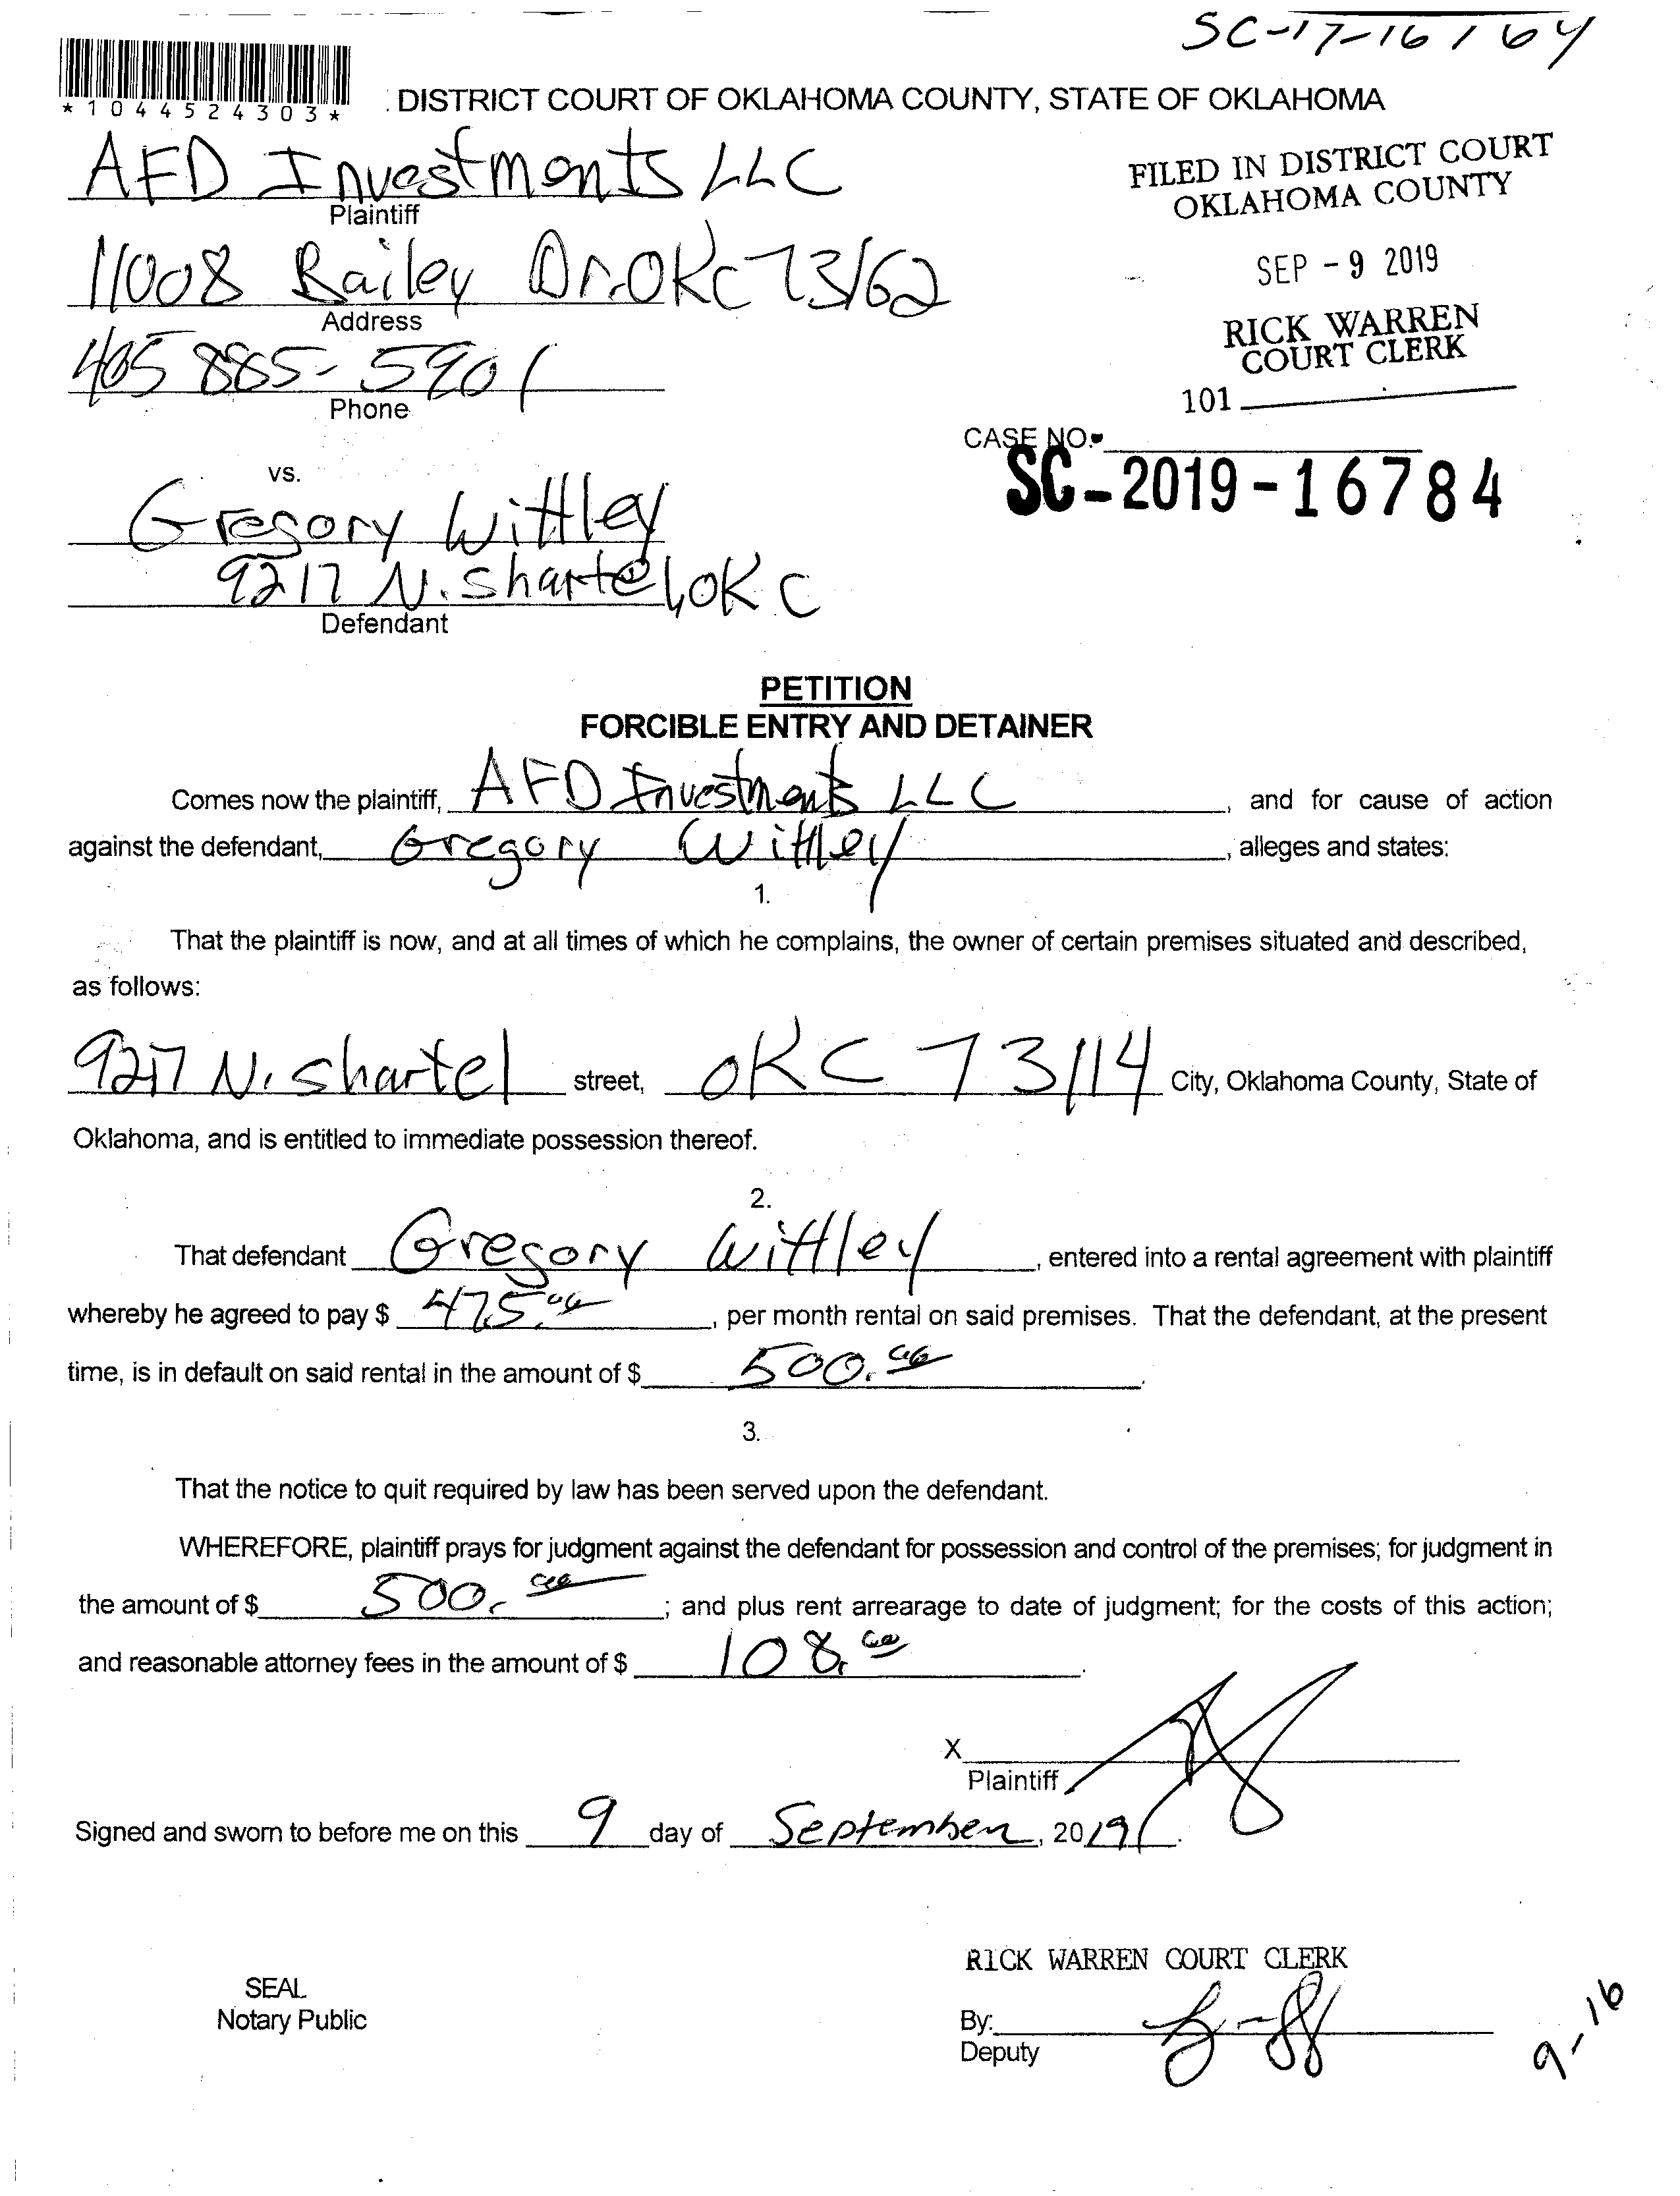 SC-17-16164
*1044524303*
DISTRICT COURT OF OKLAHOMA COUNTY, STATE OF OKLAHOMA
AFD Investments LLC
Plaintiff
FILED IN DISTRICT COURT
OKLAHOMA COUNTY
11008 Bailey Dr. OKC 73162
Address
SEP - 9 2019
405 885-5901
Phone
RICK WARREN
COURT CLERK
101
CASE NO.
SC-2019-16784
vs.
Gregory Wittley
9217 N. Shartel, OKC
Defendant
PETITION
FORCIBLE ENTRY AND DETAINER
Comes now the plaintiff, AFD Investments LLC, and for cause of action
against the defendant, Gregory Wittley, alleges and states:
1.
That the plaintiff is now, and at all times of which he complains, the owner of certain premises situated and described,
as follows:
9217 N. Shartel street, OKC 73114 City, Oklahoma County, State of
Oklahoma, and is entitled to immediate possession thereof.
2.
That defendant Gregory Wittley, entered into a rental agreement with plaintiff
whereby he agreed to pay $ 475.00, per month rental on said premises. That the defendant, at the present
time, is in default on said rental in the amount of $ 500.00.
3.
That the notice to quit required by law has been served upon the defendant.
WHEREFORE, plaintiff prays for judgment against the defendant for possession and control of the premises; for judgment in
the amount of $ 500.00; and plus rent arrearage to date of judgment; for the costs of this action;
and reasonable attorney fees in the amount of $ 108.00.
X
Plaintiff
Signed and sworn to before me on this 9 day of September, 2019.
RICK WARREN COURT CLERK
SEAL
Notary Public
By:
Deputy
9-16